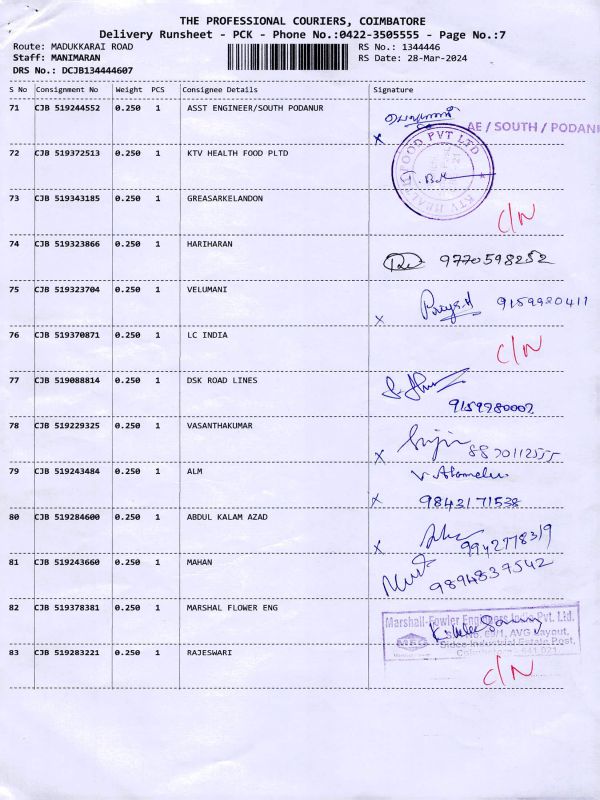 THE PROFESSIONAL COURIERS, COIMBATORE
Delivery Runsheet - PCK - Phone No.:0422-3505555 - Page No.:7
Route: MADUKKARAI ROAD
RS No.: 1344446
Staff: MANIMARAN
RS Date: 28-Mar-2024
DRS No.: DCJB134444607
S No Consignment No Weight PCS Consignee Details Signature
71 CJB 519244552 0.250 1 ASST ENGINEER/SOUTH PODANUR
AE / SOUTH / PODAN
72 CJB 519372513 0.250 1 KTV HEALTH FOOD PLTD
FOOD PVT LTD
73 CJB 519343185 0.250 1 GREASARKELANDON C/N
74 CJB 519323866 0.250 1 HARIHARAN 9770598252
75 CJB 519323704 0.250 1 VELUMANI X 9159980411
76 CJB 519370871 0.250 1 LC INDIA C/N
77 CJB 519088814 0.250 1 DSK ROAD LINES 9159780002
78 CJB 519229325 0.250 1 VASANTHAKUMAR X 8870112555
79 CJB 519243484 0.250 1 ALM V. Alamelu
X 9843171538
80 CJB 519284600 0.250 1 ABDUL KALAM AZAD X 9942778319
81 CJB 519243660 0.250 1 MAHAN 9894839542
82 CJB 519378381 0.250 1 MARSHAL FLOWER ENG
Marshall-Fowler Engineers India Pvt. Ltd.
AVG Layout,
Sidco Industrial Estate Post,
Coimbatore - 641 021
83 CJB 519283221 0.250 1 RAJESWARI C/N